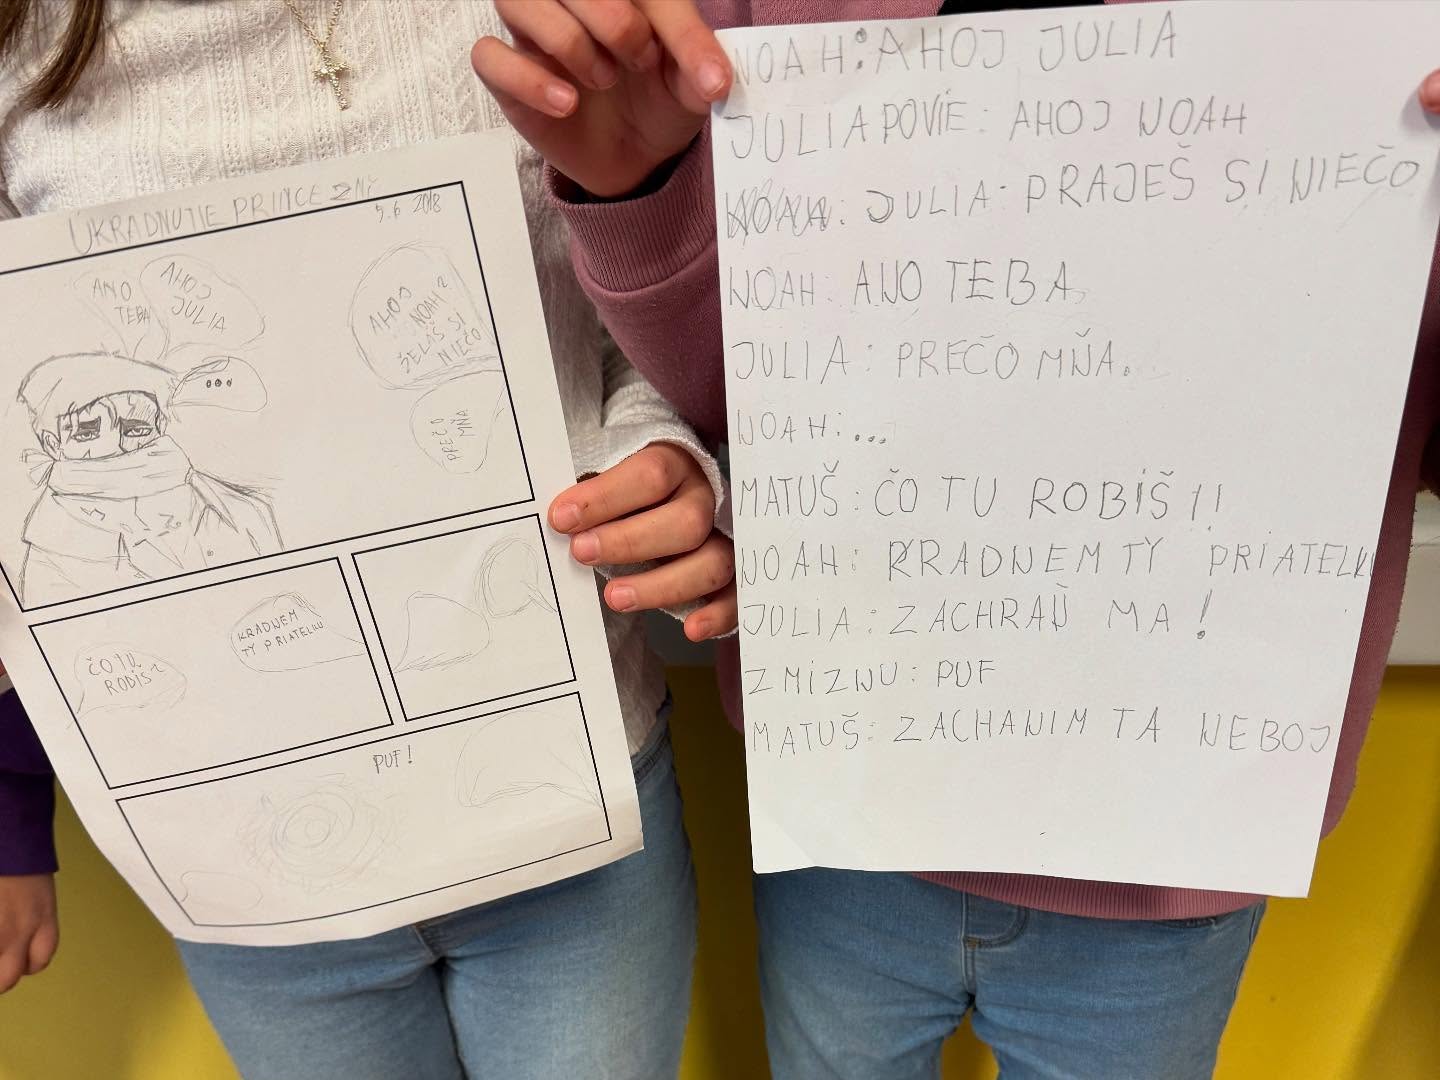 UKRADNUTIE PRINCEZNY
5.6 2018
ANO
TEBA
AHOJ
JULIA
AHOJ
NOAH?
ŽELÁŠ SI
NIEČO
...
PREČO
MŇA
ČO TU
ROBIŠ?
KRADNEM
TY PRIATELKU
PUF!
NOAH: AHOJ JULIA
JULIA POVIE: AHOJ NOAH
JULIA: PRAJEŠ SI NIEČO
NOAH: ANO TEBA
JULIA: PREČO MŇA.
NOAH:...
MATUŠ: ČO TU ROBIŠ!!
NOAH: KRADNEM TY PRIATELKU
JULIA: ZACHRAŇ MA!
ZMIZNU: PUF
MATUŠ: ZACHANIM TA NEBOJ